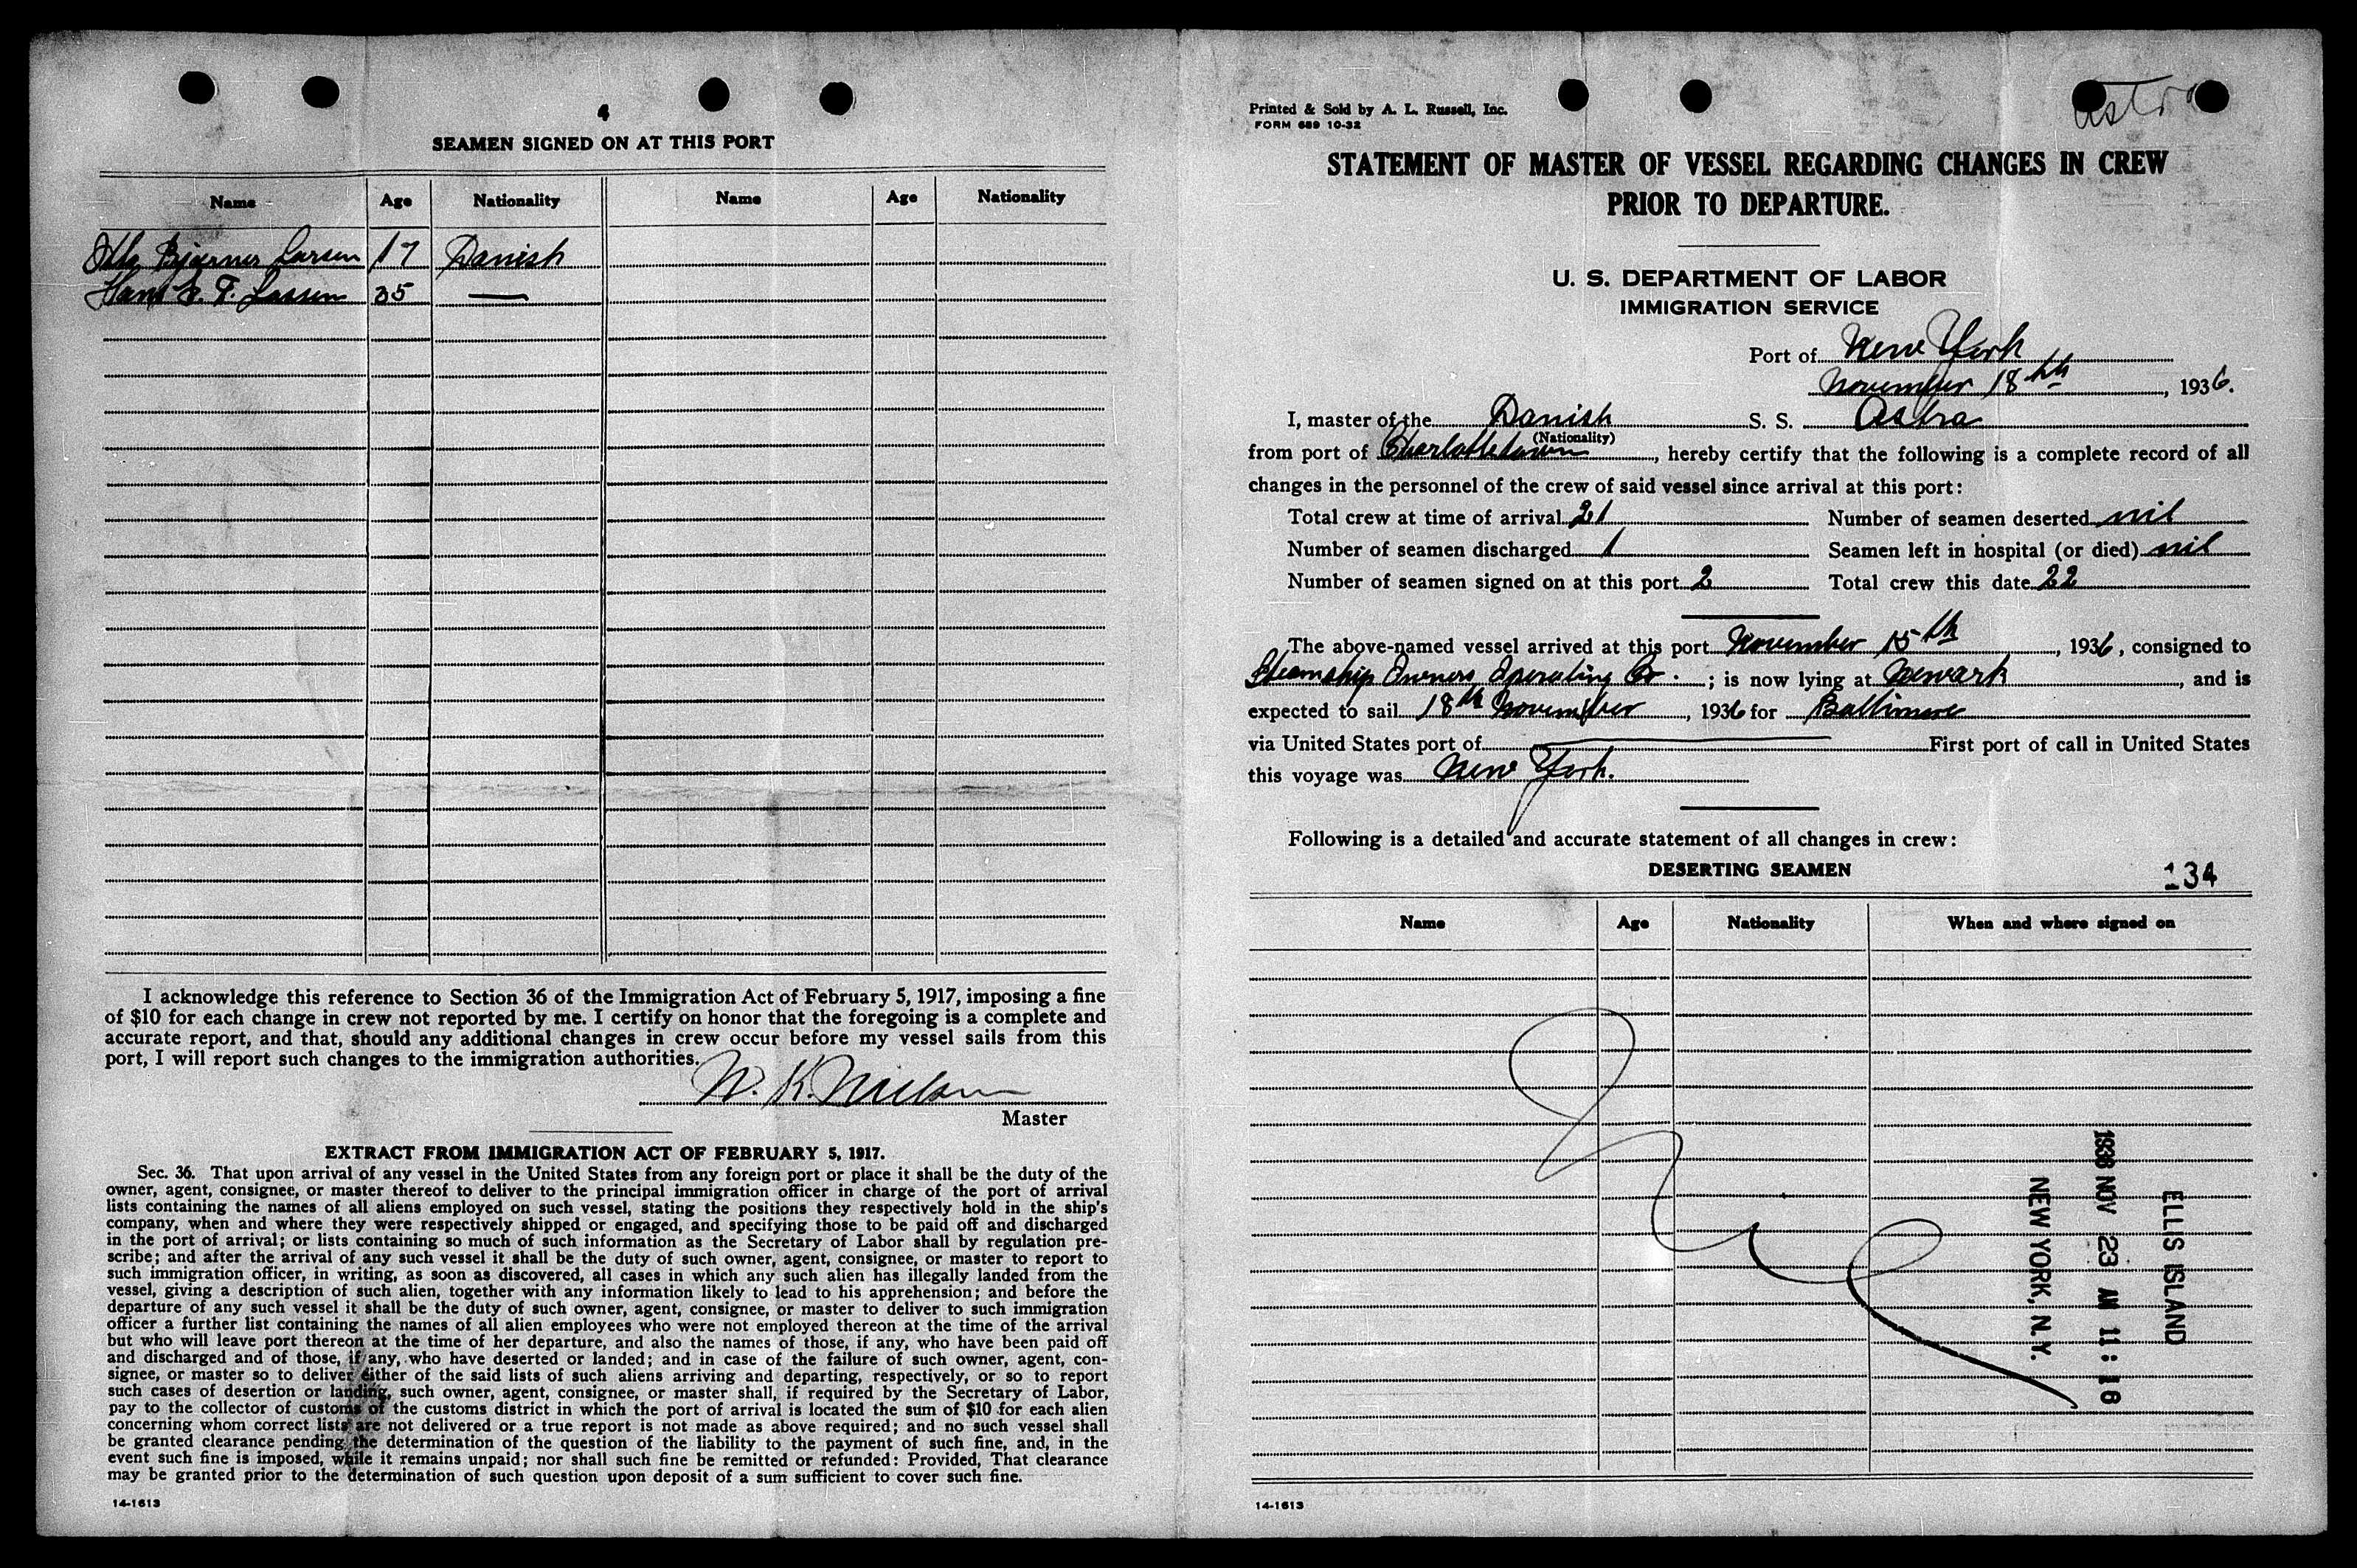 4
SEAMEN SIGNED ON AT THIS PORT
Name Age Nationality Name Age Nationality
Bjørner Larsen 17 Danish
Hans F. Lassen 35 —
I acknowledge this reference to Section 36 of the Immigration Act of February 5, 1917, imposing a fine
of $10 for each change in crew not reported by me. I certify on honor that the foregoing is a complete and
accurate report, and that, should any additional changes in crew occur before my vessel sails from this
port, I will report such changes to the immigration authorities.
Master
EXTRACT FROM IMMIGRATION ACT OF FEBRUARY 5, 1917.
Sec. 36. That upon arrival of any vessel in the United States from any foreign port or place it shall be the duty of the
owner, agent, consignee, or master thereof to deliver to the principal immigration officer in charge of the port of arrival
lists containing the names of all aliens employed on such vessel, stating the positions they respectively hold in the ship's
company, when and where they were respectively shipped or engaged, and specifying those to be paid off and discharged
in the port of arrival; or lists containing so much of such information as the Secretary of Labor shall by regulation pre-
scribe; and after the arrival of any such vessel it shall be the duty of such owner, agent, consignee, or master to report to
such immigration officer, in writing, as soon as discovered, all cases in which any such alien has illegally landed from the
vessel, giving a description of such alien, together with any information likely to lead to his apprehension; and before the
departure of any such vessel it shall be the duty of such owner, agent, consignee, or master to deliver to such immigration
officer a further list containing the names of all alien employees who were not employed thereon at the time of the arrival
but who will leave port thereon at the time of her departure, and also the names of those, if any, who have been paid off
and discharged and of those, if any, who have deserted or landed; and in case of the failure of such owner, agent, con-
signee, or master so to deliver either of the said lists of such aliens arriving and departing, respectively, or so to report
such cases of desertion or landing, such owner, agent, consignee, or master shall, if required by the Secretary of Labor,
pay to the collector of customs of the customs district in which the port of arrival is located the sum of $10 for each alien
concerning whom correct lists are not delivered or a true report is not made as above required; and no such vessel shall
be granted clearance pending the determination of the question of the liability to the payment of such fine, and, in the
event such fine is imposed, while it remains unpaid; nor shall such fine be remitted or refunded: Provided, That clearance
may be granted prior to the determination of such question upon deposit of a sum sufficient to cover such fine.
14-1613
Printed & Sold by A. L. Russell, Inc.
FORM 689 10-32
Astra
STATEMENT OF MASTER OF VESSEL REGARDING CHANGES IN CREW
PRIOR TO DEPARTURE.
U. S. DEPARTMENT OF LABOR
IMMIGRATION SERVICE
Port of New York
November 18th, 1936.
I, master of the Danish S. S. Astra
(Nationality)
from port of Charlottetown, hereby certify that the following is a complete record of all
changes in the personnel of the crew of said vessel since arrival at this port:
Total crew at time of arrival 21 Number of seamen deserted nil
Number of seamen discharged 1 Seamen left in hospital (or died) nil
Number of seamen signed on at this port 2 Total crew this date 22
The above-named vessel arrived at this port November 15th, 1936, consigned to
Steamship Owners Operating Co.; is now lying at Newark, and is
expected to sail 18th November, 1936 for Baltimore
via United States port of — First port of call in United States
this voyage was New York.
Following is a detailed and accurate statement of all changes in crew:
DESERTING SEAMEN
134
Name Age Nationality When and where signed on
ELLIS ISLAND
1936 NOV 23 AM 11:16
NEW YORK, N.Y.
14-1613